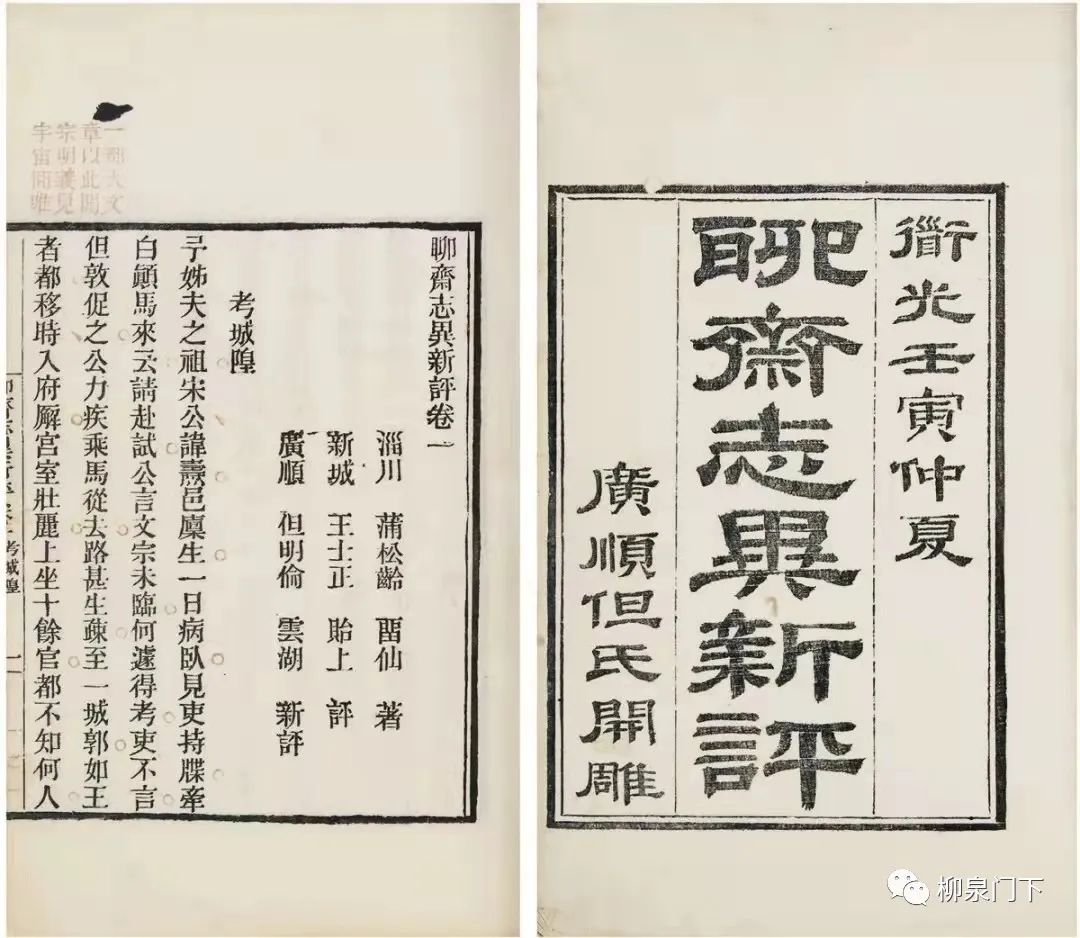 衜光壬寅仲夏
聊齋志異新評
廣順但氏開雕
一部大文
章以此開
宗明義見
宇宙間唯
聊齋志異新評卷一
淄川 蒲松齡 畱仙 著
新城 王士正 貽上 評
廣順 但明倫 雲湖 新評
考城隍
予姊夫之祖宋公諱燾邑廩生一日病臥見吏持牒牽
白顚馬來云請赴試公言文宗未臨何遽得考吏不言
但敦促之公力疾乘馬從去路甚生疎至一城郭如王
者都移時入府廨宮室壯麗上坐十餘官都不知何人
考城隍 一
柳泉门下